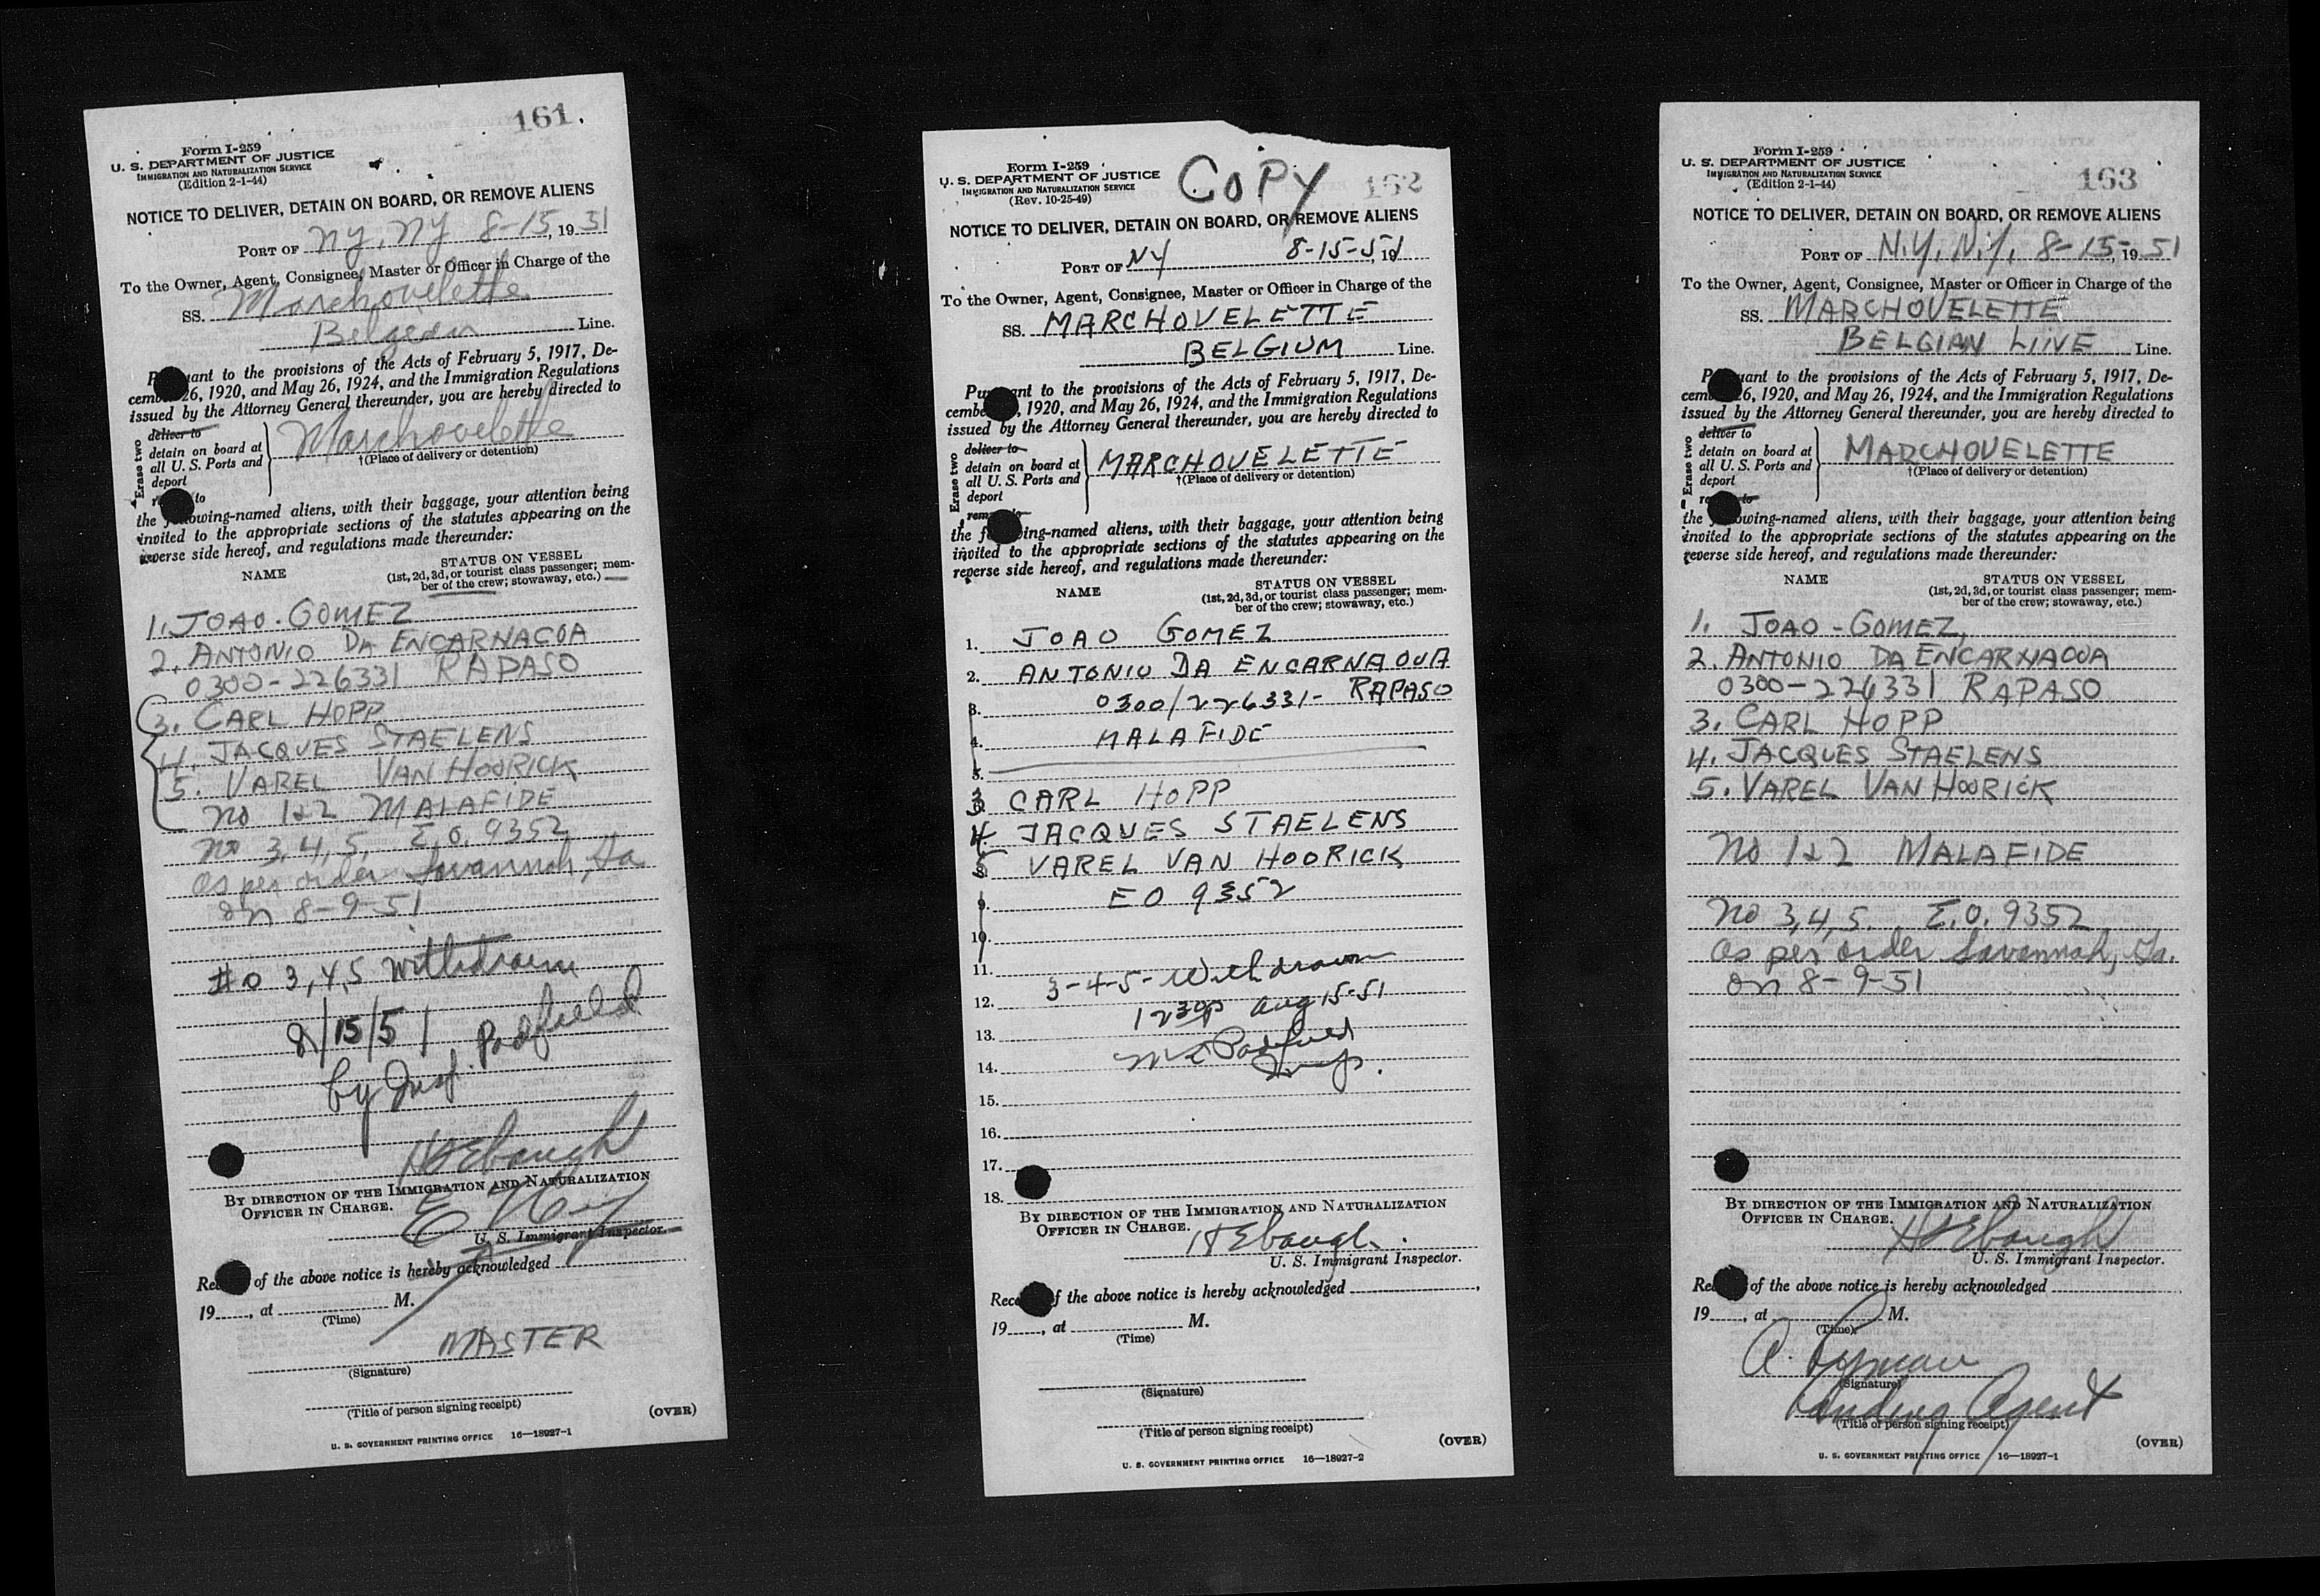 161.
Form I-259
U. S. DEPARTMENT OF JUSTICE
IMMIGRATION AND NATURALIZATION SERVICE
(Edition 2-1-44)
NOTICE TO DELIVER, DETAIN ON BOARD, OR REMOVE ALIENS
PORT OF NY, NY 8-15, 1951
To the Owner, Agent, Consignee, Master or Officer in Charge of the
SS. Marchovelette
Belgian Line.
P uant to the provisions of the Acts of February 5, 1917, De-
cemb 26, 1920, and May 26, 1924, and the Immigration Regulations
issued by the Attorney General thereunder, you are hereby directed to
Erase two
deliver to
detain on board at
all U. S. Ports and
deport
r to
Marchovelette
†(Place of delivery or detention)
the f owing-named aliens, with their baggage, your attention being
invited to the appropriate sections of the statutes appearing on the
reverse side hereof, and regulations made thereunder:
NAME
STATUS ON VESSEL
(1st, 2d, 3d, or tourist class passenger; mem-
ber of the crew; stowaway, etc.)
1. JOAO - GOMEZ
2. ANTONIO DA ENCARNACOA
0300-226331 RAPASO
3. CARL HOPP
4. JACQUES STAELENS
5. VAREL VAN HOORICK
No 1&2 MALAFIDE
No 3, 4, 5, E.O. 9352
as per order Savannah, Ga.
on 8-9-51
#0 3, 4, 5 withdrawn
8/15/51
by Insp. Padfield
HEbaugh
BY DIRECTION OF THE IMMIGRATION AND NATURALIZATION
OFFICER IN CHARGE.
U. S. Immigrant Inspector.
Rec of the above notice is hereby acknowledged
19 , at M.
(Time)
MASTER
(Signature)
(Title of person signing receipt)
(OVER)
U. S. GOVERNMENT PRINTING OFFICE 16—18927-1
COPY
162
Form I-259
U. S. DEPARTMENT OF JUSTICE
IMMIGRATION AND NATURALIZATION SERVICE
(Rev. 10-25-49)
NOTICE TO DELIVER, DETAIN ON BOARD, OR REMOVE ALIENS
PORT OF NY 8-15-51, 19
To the Owner, Agent, Consignee, Master or Officer in Charge of the
SS. MARCHOVELETTE
BELGIUM Line.
Pur nt to the provisions of the Acts of February 5, 1917, De-
cembe , 1920, and May 26, 1924, and the Immigration Regulations
issued by the Attorney General thereunder, you are hereby directed to
Erase two
deliver to
detain on board at
all U. S. Ports and
deport
rem
MARCHOVELETTE
†(Place of delivery or detention)
the f ing-named aliens, with their baggage, your attention being
invited to the appropriate sections of the statutes appearing on the
reverse side hereof, and regulations made thereunder:
NAME
STATUS ON VESSEL
(1st, 2d, 3d, or tourist class passenger; mem-
ber of the crew; stowaway, etc.)
1. JOAO GOMEZ
2. ANTONIO DA ENCARNAOUA
3. 0300/226331- RAPASO
4. MALAFIDE
5.
3 CARL HOPP
4 JACQUES STAELENS
5 VAREL VAN HOORICK
9. EO 9352
10.
11. 3-4-5-Withdrawn
12. 1230p Aug 15-51
13.
14. Padfield Insp.
15.
16.
17.
18.
BY DIRECTION OF THE IMMIGRATION AND NATURALIZATION
OFFICER IN CHARGE.
HEbaugh.
U. S. Immigrant Inspector.
Rece f the above notice is hereby acknowledged ,
19 , at M.
(Time)
(Signature)
(Title of person signing receipt)
(OVER)
U. S. GOVERNMENT PRINTING OFFICE 16—18927-2
163
Form I-259
U. S. DEPARTMENT OF JUSTICE
IMMIGRATION AND NATURALIZATION SERVICE
(Edition 2-1-44)
NOTICE TO DELIVER, DETAIN ON BOARD, OR REMOVE ALIENS
PORT OF N.Y, N.Y, 8-15, 1951
To the Owner, Agent, Consignee, Master or Officer in Charge of the
SS. MARCHOVELETTE
BELGIAN LINE Line.
P uant to the provisions of the Acts of February 5, 1917, De-
cem 26, 1920, and May 26, 1924, and the Immigration Regulations
issued by the Attorney General thereunder, you are hereby directed to
Erase two
deliver to
detain on board at
all U. S. Ports and
deport
r to
MARCHOVELETTE
†(Place of delivery or detention)
the f owing-named aliens, with their baggage, your attention being
invited to the appropriate sections of the statutes appearing on the
reverse side hereof, and regulations made thereunder:
NAME
STATUS ON VESSEL
(1st, 2d, 3d, or tourist class passenger; mem-
ber of the crew; stowaway, etc.)
1. JOAO - GOMEZ,
2. ANTONIO DA ENCARNACOA
0300-226331 RAPASO
3. CARL HOPP
4. JACQUES STAELENS
5. VAREL VAN HOORICK
No 1&2 MALAFIDE
No 3, 4, 5. E.O. 9352
as per order Savannah, Ga.
on 8-9-51
BY DIRECTION OF THE IMMIGRATION AND NATURALIZATION
OFFICER IN CHARGE.
HEbaugh
U. S. Immigrant Inspector.
Rec of the above notice is hereby acknowledged
19 , at M.
(Time)
(Signature)
Landing Agent
(Title of person signing receipt)
(OVER)
U. S. GOVERNMENT PRINTING OFFICE 16—18927-1